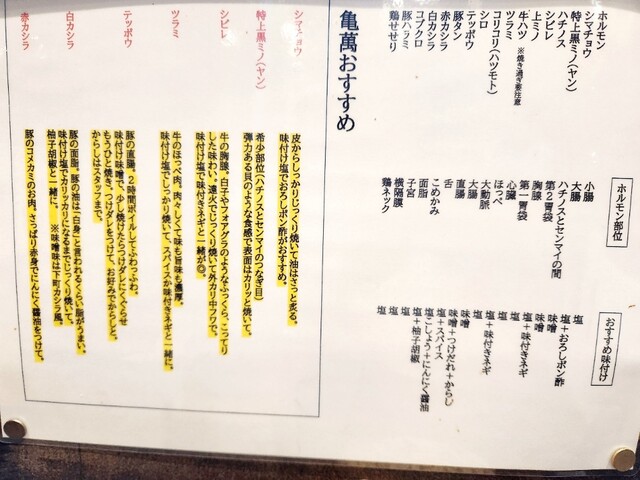 ホルモン
シマチョウ
特上黒ミノ(ヤン)
ハチノス
シビレ
上ミノ
牛ハツ ※焼き過ぎ要注意
ツラミ
コリコリ(ハツモト)
シロ
テッポウ
豚タン
赤カシラ
白カシラ
コブクロ
豚ハラミ
鶏せせり
ホルモン部位
小腸
大腸
ハチノスとセンマイの間
第2胃袋
胸腺
第一胃袋
心臓
ほっぺ
大動脈
大腸
直腸
舌
こめかみ
面脂
子宮
横隔膜
鶏ネック
おすすめ味付け
塩
塩+おろしポン酢
味噌
味噌
塩+味付きネギ
塩
塩
塩+味付きネギ
塩
味噌
味噌+つけだれ+からし
塩+スパイス
塩こしょう+にんにく醤油
塩+柚子胡椒
塩
塩
塩
亀萬おすすめ
シマチョウ
皮からしっかりじっくり焼いて油はさっと炙る。
味付け塩でおろしポン酢がおすすめ。
特上黒ミノ(ヤン)
希少部位(ハチノスとセンマイのつなぎ目)
弾力ある貝のような食感で表面はカリッと焼いて。
シビレ
牛の胸腺。白子やフォアグラのようなぷっくら、こってり
した味わい。遠火でじっくり焼いて外カリ中フワで。
味付け塩で味付きネギと一緒が◎。
ツラミ
牛のほっぺ肉。肉々しくて味も旨味も濃厚。
味付け塩でしっかり焼いて、スパイスか味付きネギと一緒に。
テッポウ
豚の直腸。2時間ボイルしてふわっふわ。
味付け味噌で、少し焼けたらつけダレにくぐらせ
もうひと焼き。つけダレをつけて、お好みでからしと。
からしはスタッフまで。
白カシラ
豚の面脂。豚の油は「白身」と言われるくらい脂がうまい。
味付け塩でカリッカリになるまでじっくり焼いて、
柚子胡椒と一緒に。 ※味噌味は下町カシラ風。
赤カシラ
豚のコメカミのお肉。さっぱり赤身でにんにく醤油をつけて。